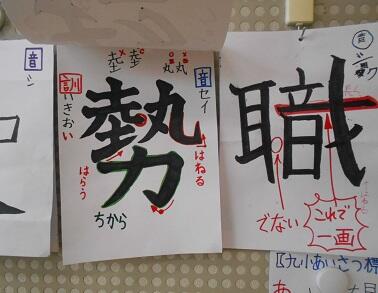 音
シ
勢
音 セイ
訓
いきおい
はねる
はらう
ちから
丸丸
職
音
でない
これで
一画
九小あいさつ標